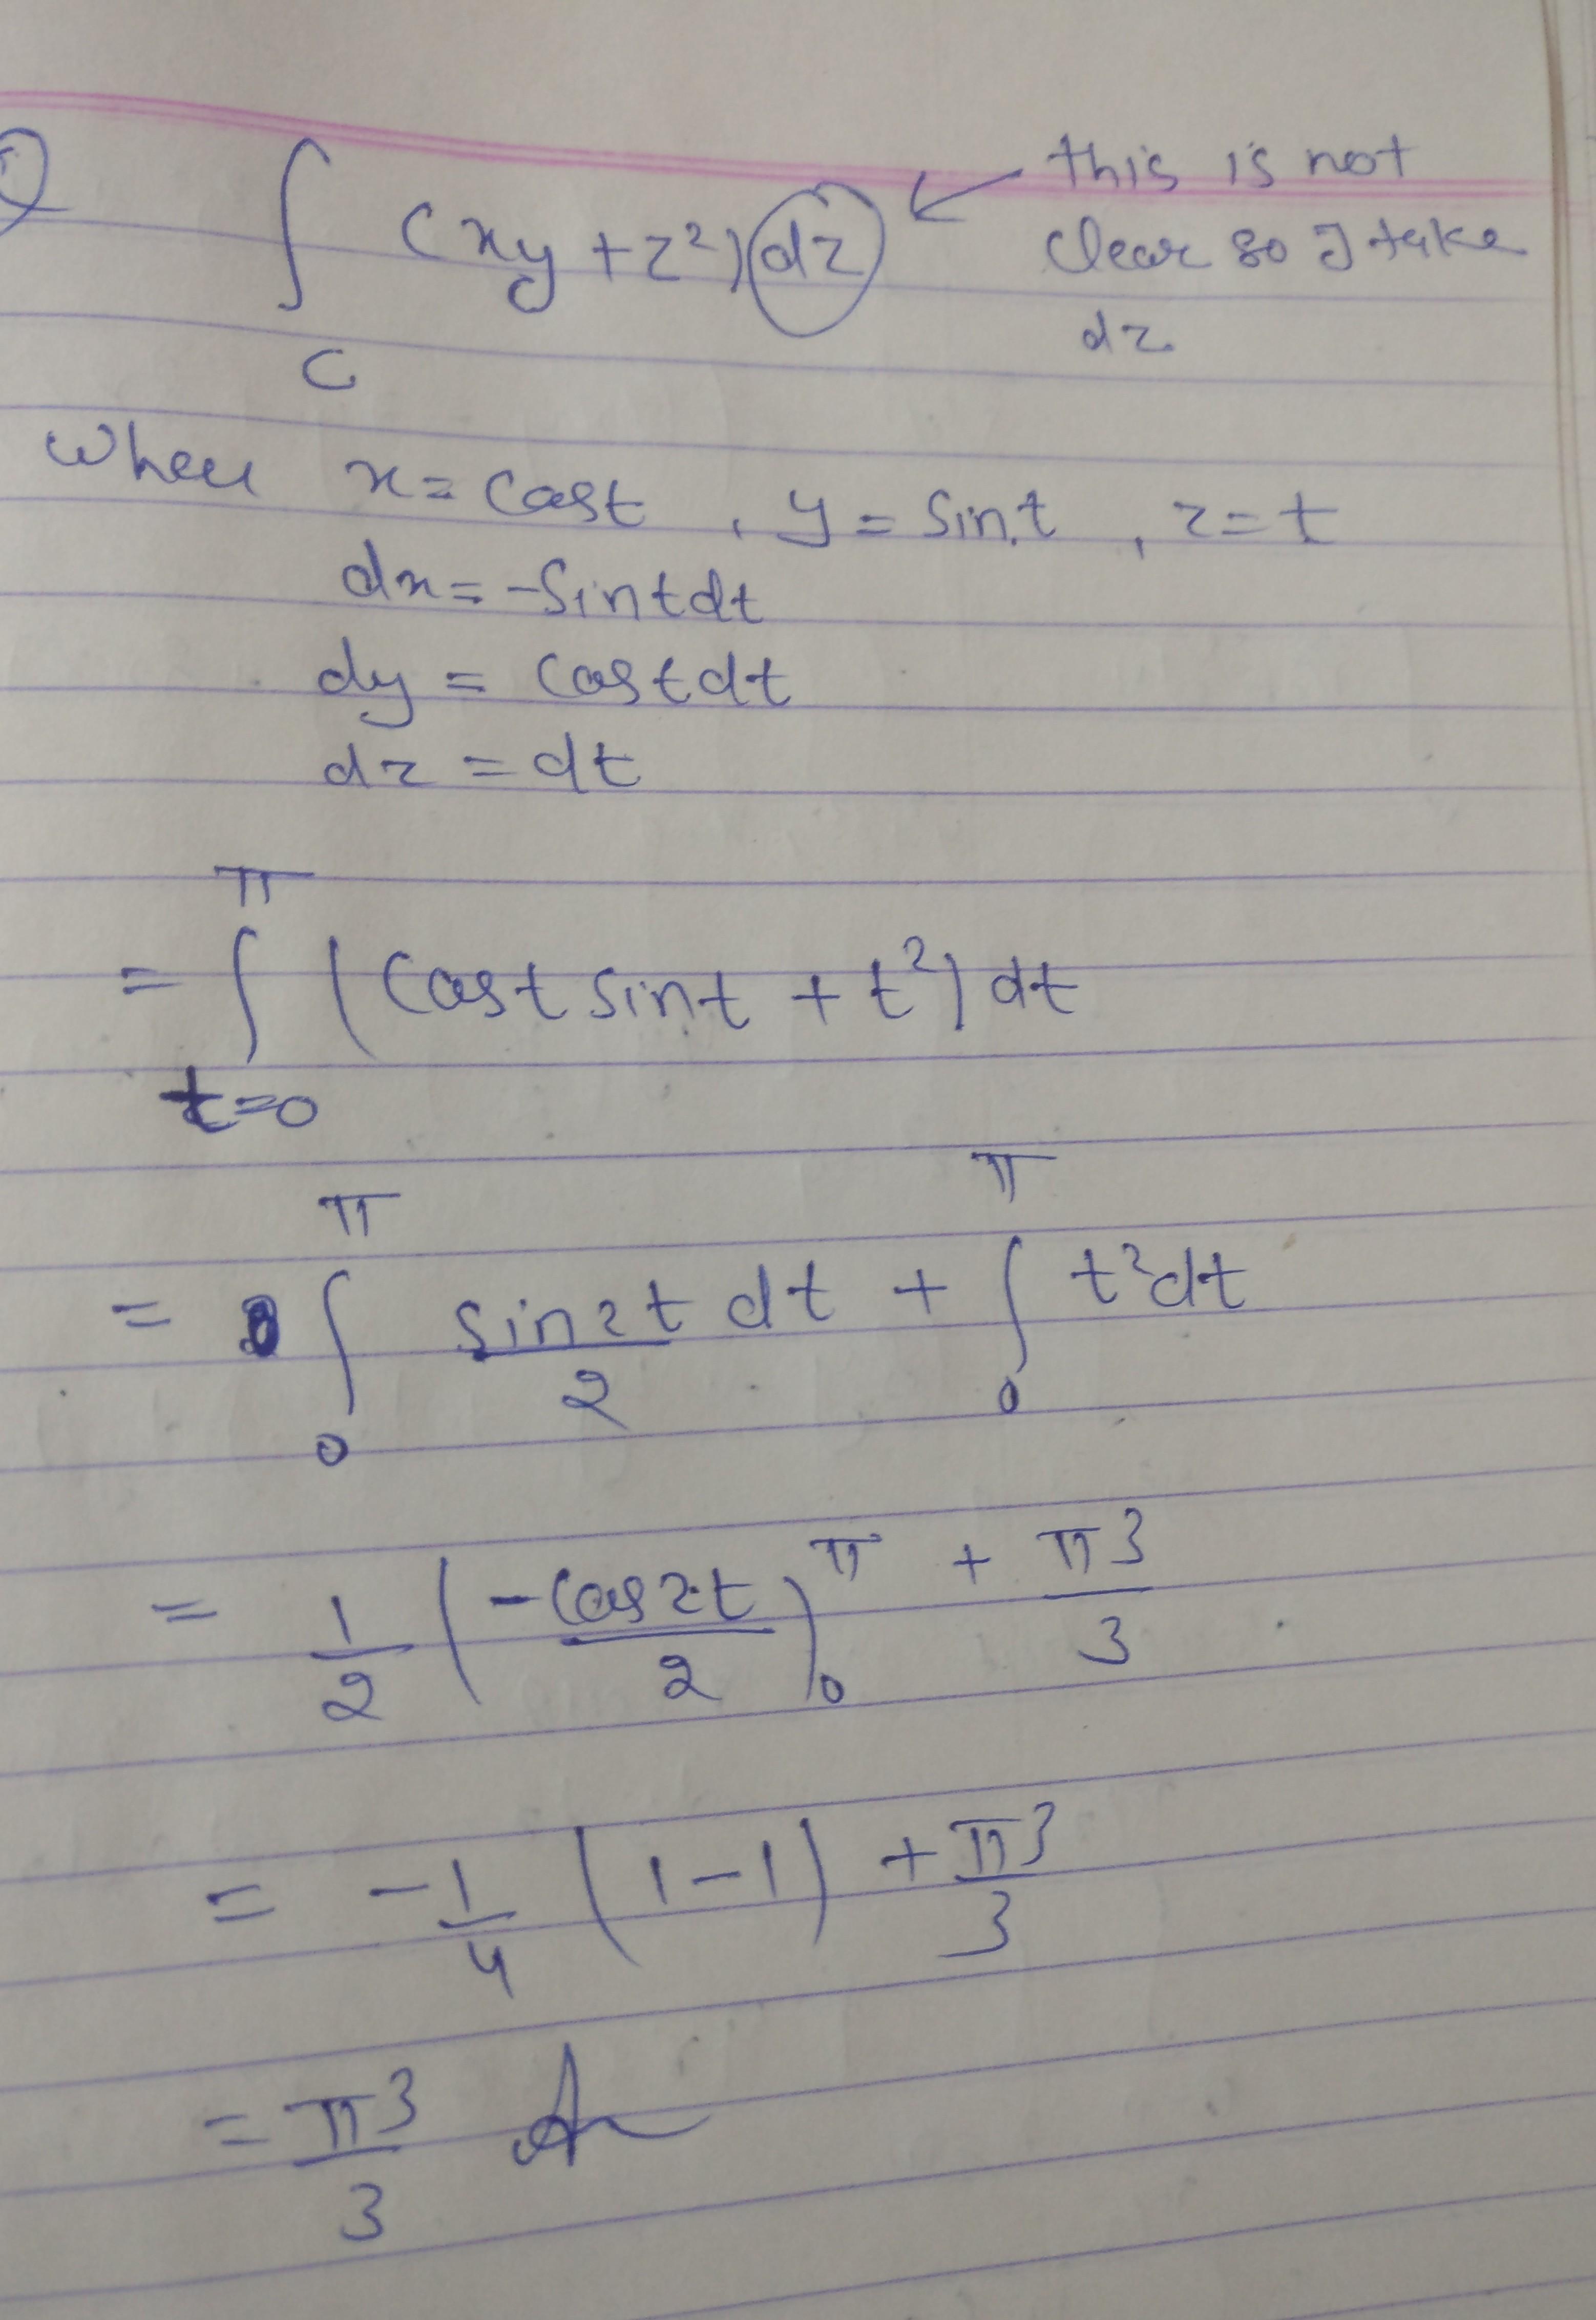 1) ∫ (xy + z²) dz ← this is not
clear so I take
dz
C
where x = cost , y = sint , z = t
dx = -sintdt
dy = costdt
dz = dt
= ∫_{t=0}^{π} (cost sint + t²) dt
= ∫_0^π sin2t/2 dt + ∫_0^π t²dt
= 1/2 (-cos2t/2)_0^π + π³/3
= -1/4 (1-1) + π³/3
= π³/3